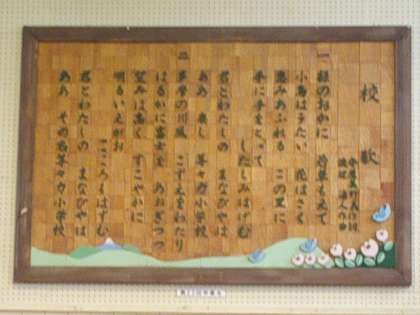 校歌
一 緑のおかに 若草もえて
小鳥はうたい 花はさく
恵みあふれる この里に
手に手をとって
したしみはげむ
君とわたしの まなびやは
ああ 楽し 等々力小学校
二 多摩の川風 こずえをわたり
はるかに富士を あおぎつつ
望みは高く すこやかに
明るいえがお
こころもはずむ
君とわたしの まなびやは
ああ その名等々力小学校